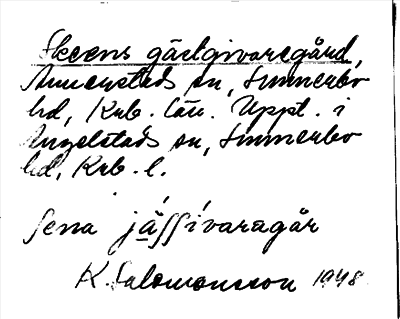 Skeens gästgivaregård,
Annerstads sn, Sunnerbo
hd, Krb. län. Uppt. i
Angelstads sn, Sunnerbo
hd, Krb. l.
sena jäʃʃívaragår
K. Salomonsson 1948